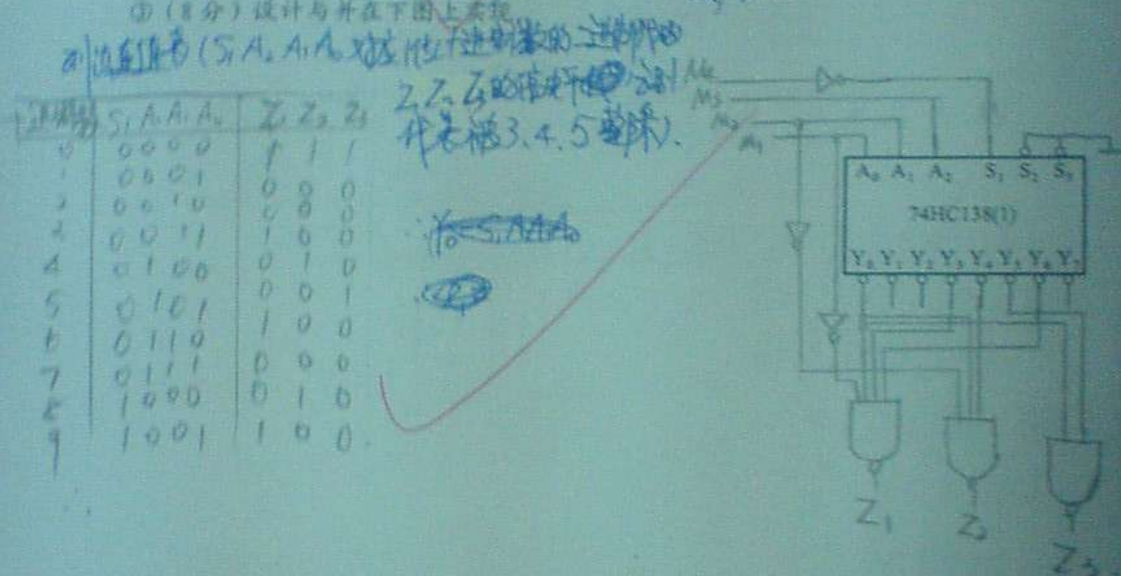 ③(8分)设计与并在下图上实现
a)真值表(S₁A₂A₁A₀对应1位十进制数的二进制
Z₁Z₂Z₃的 分别
代表被3、4、5整除).
S₁ A₂ A₁ A₀ Z₁ Z₂ Z₃
0 0 0 0 0 1 1 1
1 0 0 0 1 0 0 0
2 0 0 1 0 0 0 0
3 0 0 1 1 1 0 0
4 0 1 0 0 0 1 0
5 0 1 0 1 0 0 1
6 0 1 1 0 1 0 0
7 0 1 1 1 0 0 0
8 1 0 0 0 0 1 0
9 1 0 0 1 1 0 0
M₃
M₂
M₁
A₀ A₁ A₂ S₁ S₂ S₃
74HC138(1)
Y₀ Y₁ Y₂ Y₃ Y₄ Y₅ Y₆ Y₇
Z₁ Z₂ Z₃